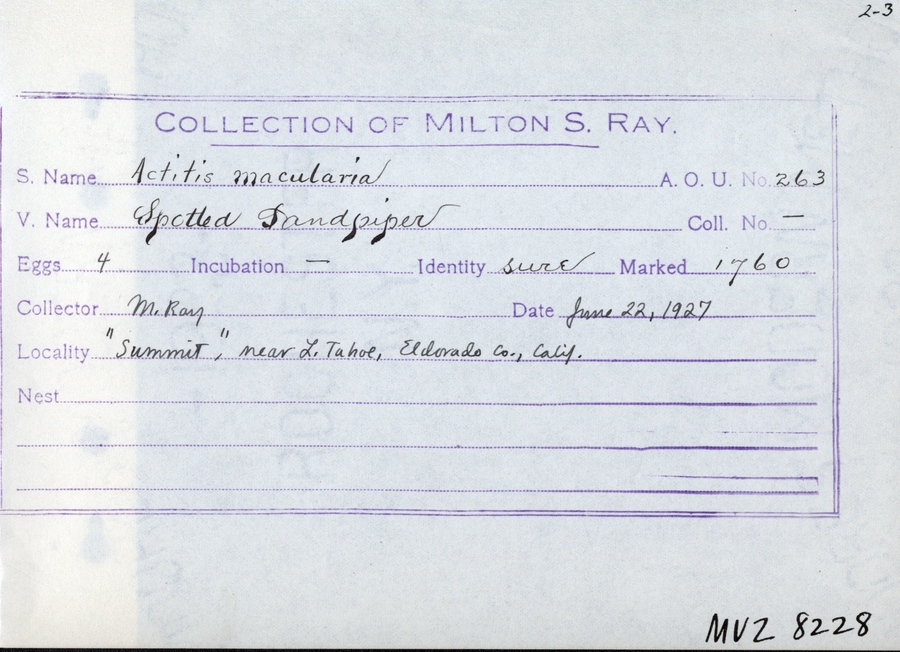 2-3
COLLECTION OF MILTON S. RAY.
S. Name Actitis macularia A. O. U. No. 263
V. Name Spotted Sandpiper Coll. No. —
Eggs 4 Incubation — Identity sure Marked 1760
Collector M. Ray Date June 22, 1927
Locality "Summit", near L. Tahoe, Eldorado Co., Calif.
Nest
MVZ 8228